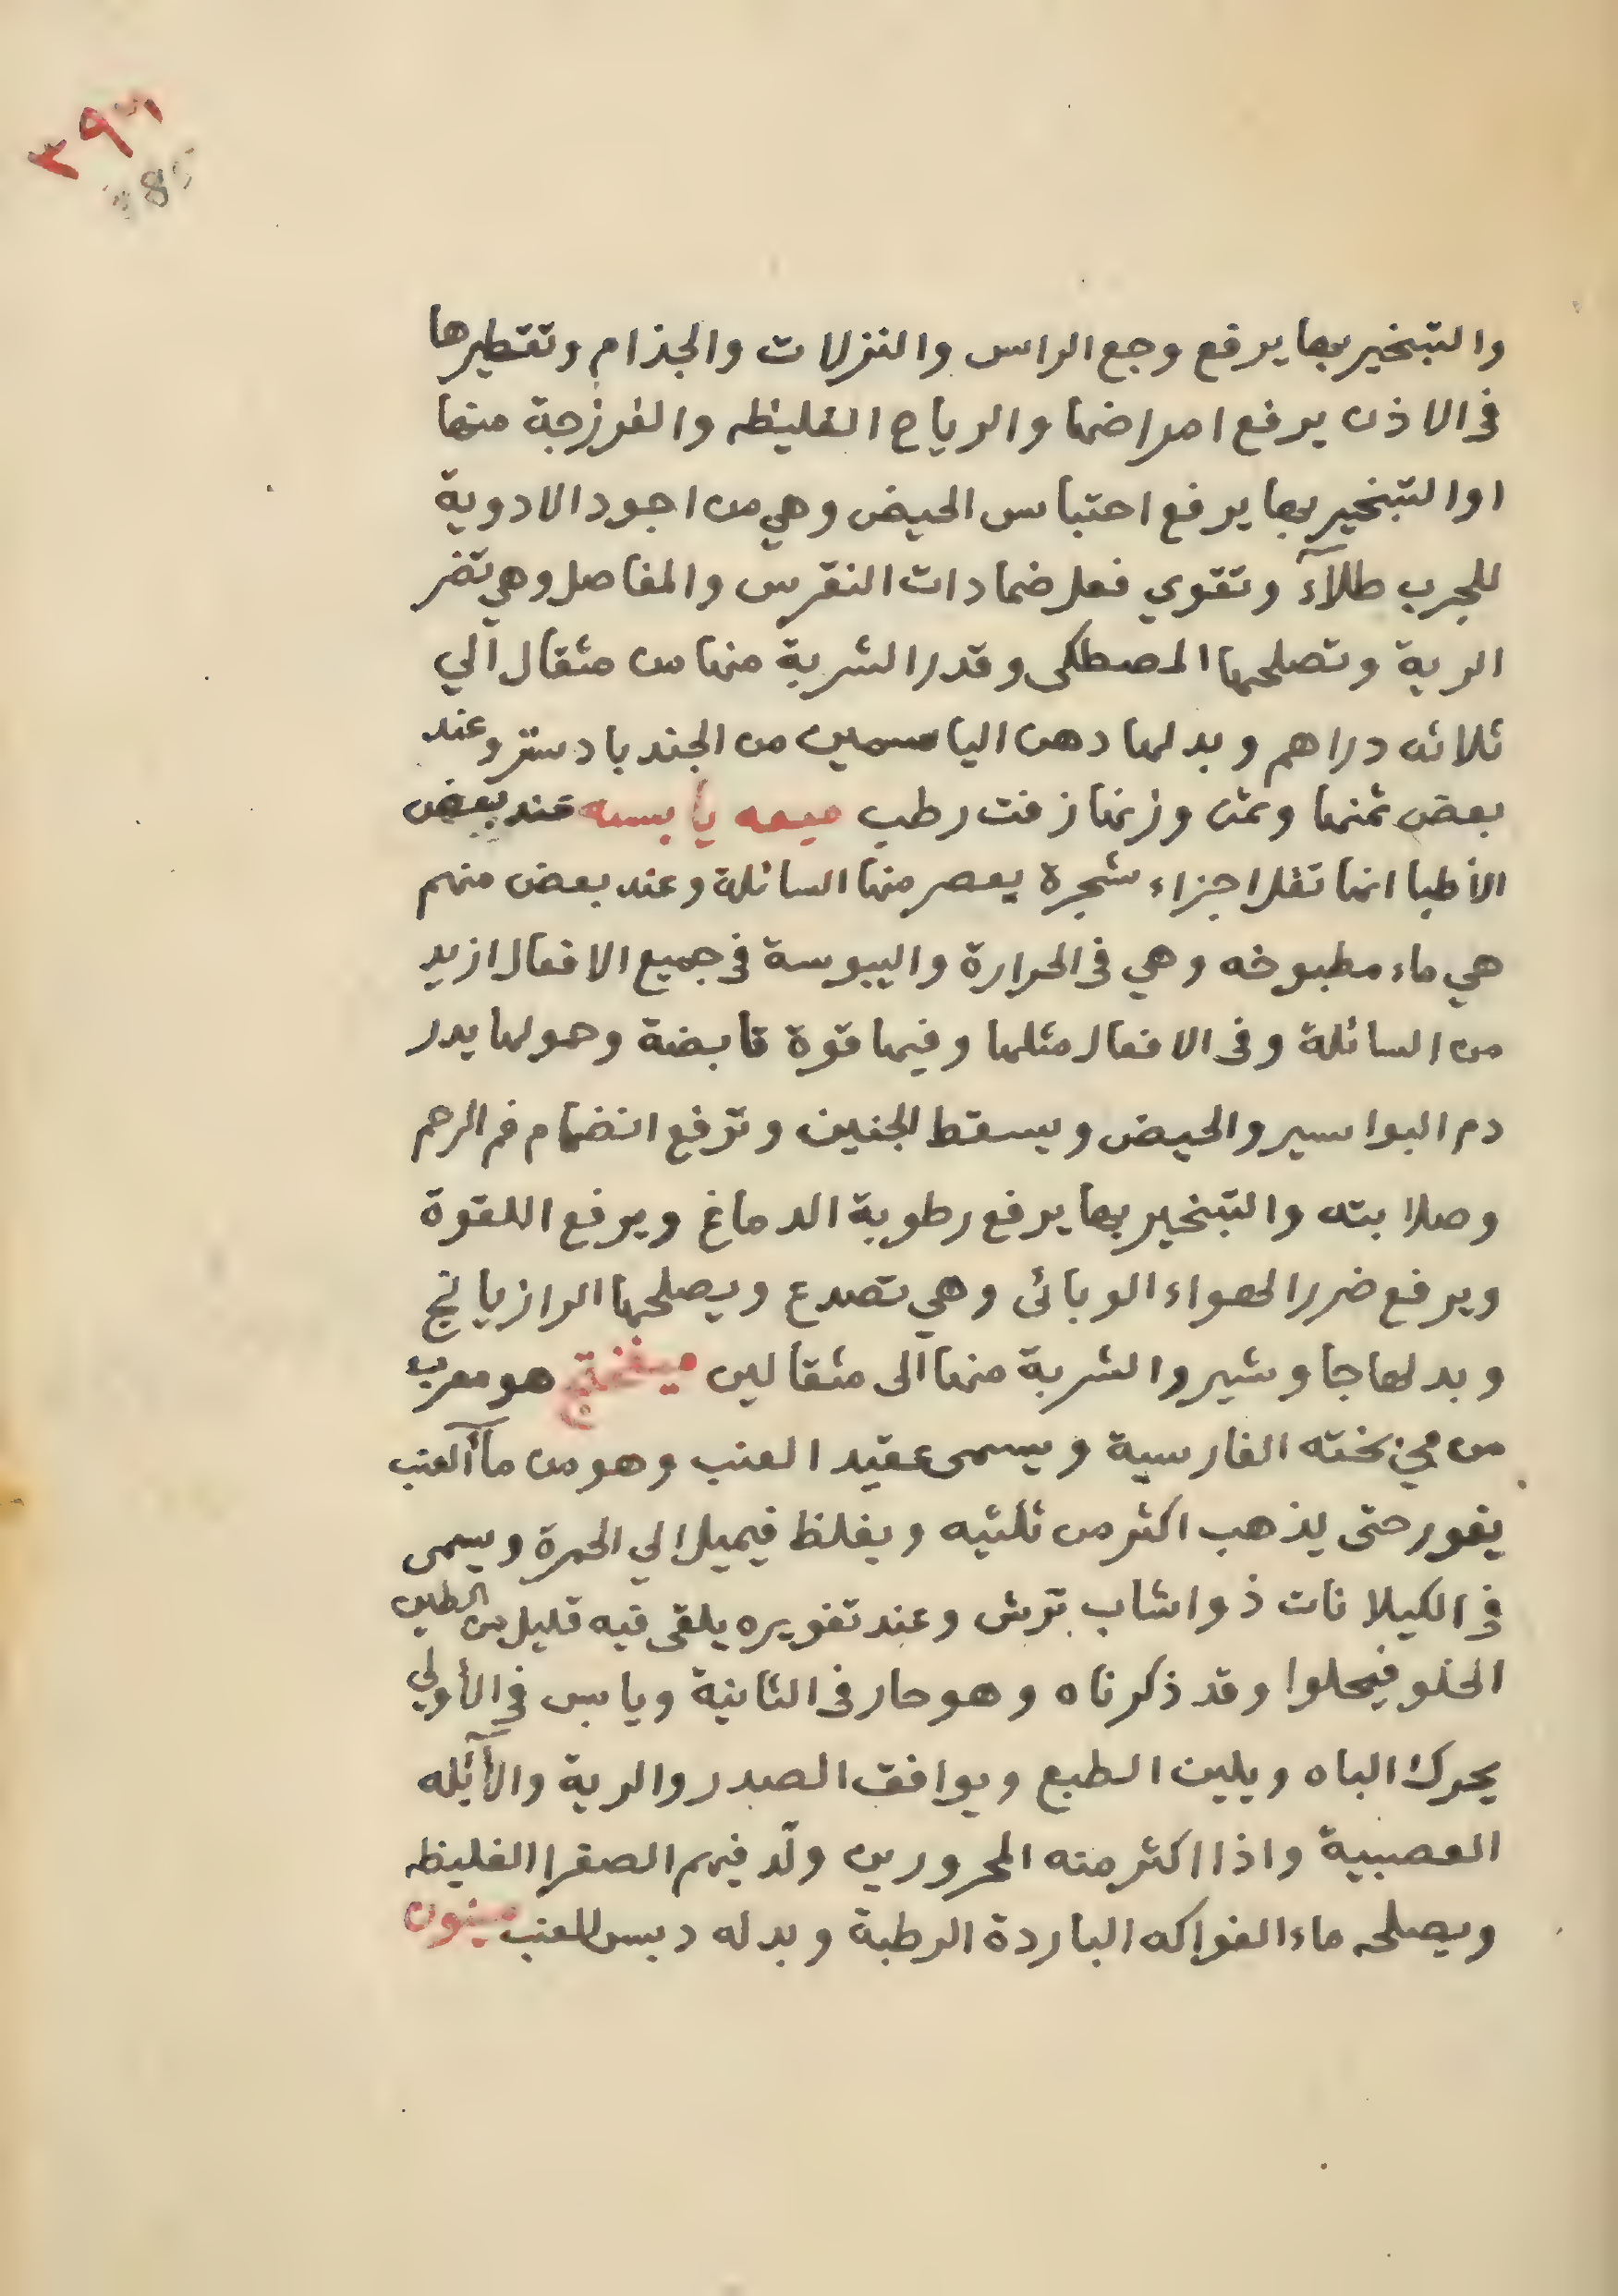 ٣٩٦
والتبخير بها يرفع وجع الراس والنزلات والجذام وتقطيرها
في الاذن يرفع امراضها والرياح الغليظه والفرزجة منها
او التبخير بها يرفع احتباس الحيض وهي من اجود الادوية
للجرب طلآء وتقوي فعل ضمادات النقرس والمفاصل وهي تضر
الرية وتصلحها المصطكى وقدر الشربة منها من مثقال الي
ثلاثه دراهم وبدلها دهن الياسمين من الجند بادستر وعند
بعض ثمنها وثمن وزنها زفت رطب ميعه يابسه عند بعض
الأطبا انها ثفل اجزاء شجرة يعصر منها السائلة وعند بعض منهم
هي ماء مطبوخه وهي في الحرارة واليبوسة في جميع الافعال ازيد
من السائلة وفى الافعال مثلها وفيها قوة قابضة وهولها يدر
دم البواسير والحيض ويسقط الجنين وترفع انضمام فم الرحم
وصلابته والتبخير بها يرفع رطوبة الدماغ ويرفع اللقوة
ويرفع ضرر الهواء الوبائى وهي تصدع ويصلحها الرازيانج
وبدلها جاوشير والشربة منها الى مثقالين ميفختج هو معرب
من مي بخته الفارسية ويسمى عقيد العنب وهو من مآ العنب
يغور حتى يذهب اكثر من ثلثيه ويغلظ فيميل الي الحمرة ويسمى
في الكيلانات ذواشاب ترش وعند تغويره يلقى فيه قليل من الطين
الحلو فيحلوا وقد ذكرناه وهو حار فى الثانية ويابس في الأولي
يحرك الباه ويلين الطبع ويوافق الصدر والرية والآله
العصبية واذا اكثر منه المحرورين ولّد فيهم الصفرا الغليظه
ويصلحه ماء الفواكه الباردة الرطبة وبدله دبس العنب مينون